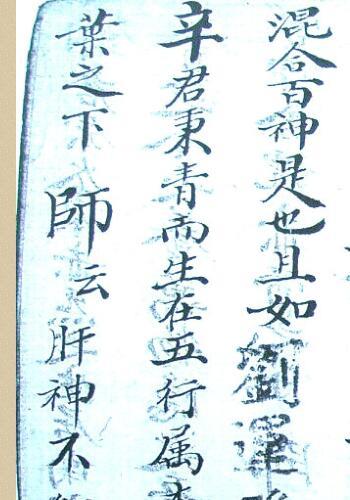 混合百神是也且如劉運
辛君秉青而生在五行属木
葉之下師云肝神不